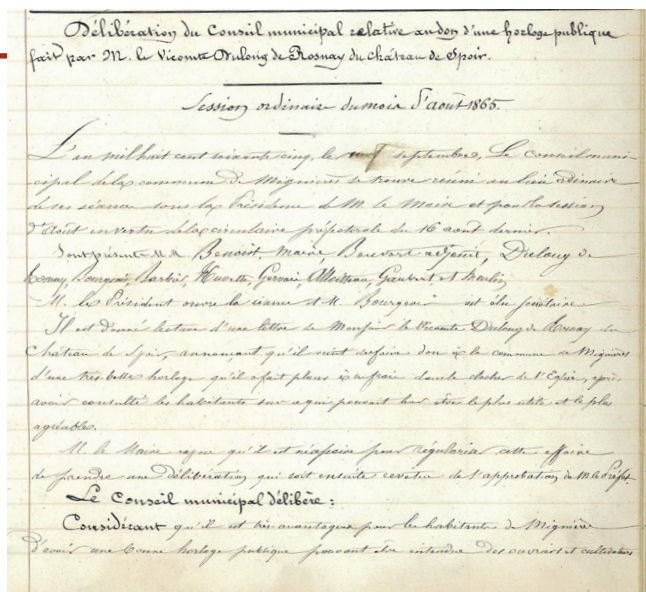 Délibération du Conseil municipal relative au don d'une horloge publique
fait par M. le Vicomte Dulong de Rosnay du château de Spoir.
Session ordinaire du mois d'août 1865.
L'an mil huit cent soixante cinq, le neuf septembre, Le Conseil muni-
cipal de la commune de Mignières se trouve réuni au lieu ordinaire
de ses séances sous la Présidence de M. le Maire et pour la session
d'Août en vertu de la circulaire préfectorale du 16 août dernier.
Sont présents M.M. Benoist, Maire, Bouvart adjoint, Dulong de
Rosnay, Bourgeois, Barbier, Huvette, Moiteau, Gaubert et Merlin
M. le Président ouvre la séance et M. Bourgeois est élu secrétaire
Il est donné lecture d'une lettre de Monsieur le Vicomte Dulong de Rosnay du
Château de Spoir, annonçant qu'il vient de faire don à la commune de Mignières
d'une très belle horloge qu'il a fait placer à ses frais dans le clocher de l'Eglise, après
avoir consulté les habitants sur ce qui pouvait leur être le plus utile et le plus
agréable.
M. le Maire expose qu'il est nécessaire pour régulariser cette affaire
de prendre une délibération qui soit ensuite revêtue de l'approbation de M. le Préfet
Le Conseil municipal délibère :
Considérant qu'il est très avantageux pour les habitants de Mignières
d'avoir une bonne horloge publique pouvant être entendue des ouvriers et cultivateurs